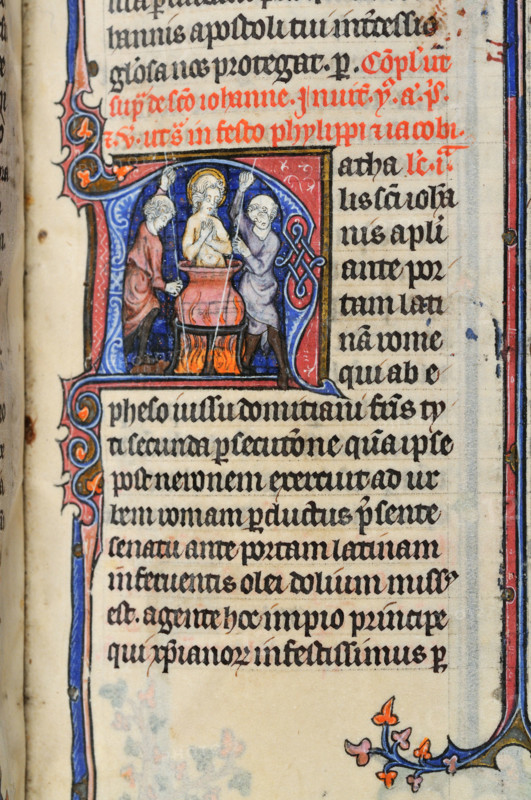 hannis apostoli tui intercessio
gl̄osa nos protegat. p̱. Cōpl̄ ut
sup̱ de sc̄o iohanne. Inuit. ꝟ. a. p̄s.
⁊ ꝟ. ut s̄ in festo phylippi ⁊ iacobi.
Natha lc̄. i.ᵃ
lis sc̄i ioh̄a
nis apl̄i
ante por
tam lati
nā rome
qui ab e
pheso iussu domitiani fr̄is ty
ti secunda p̱secutōne qūa ipse
post neronem exercuit ad ur
bem romam p̱ductus p̄sente
senatu ante portam latinam
in feruentis olei dolium miss᷒
est. agente hoc impio principe
qui xp̄ianoꝝ infestissimus p̱